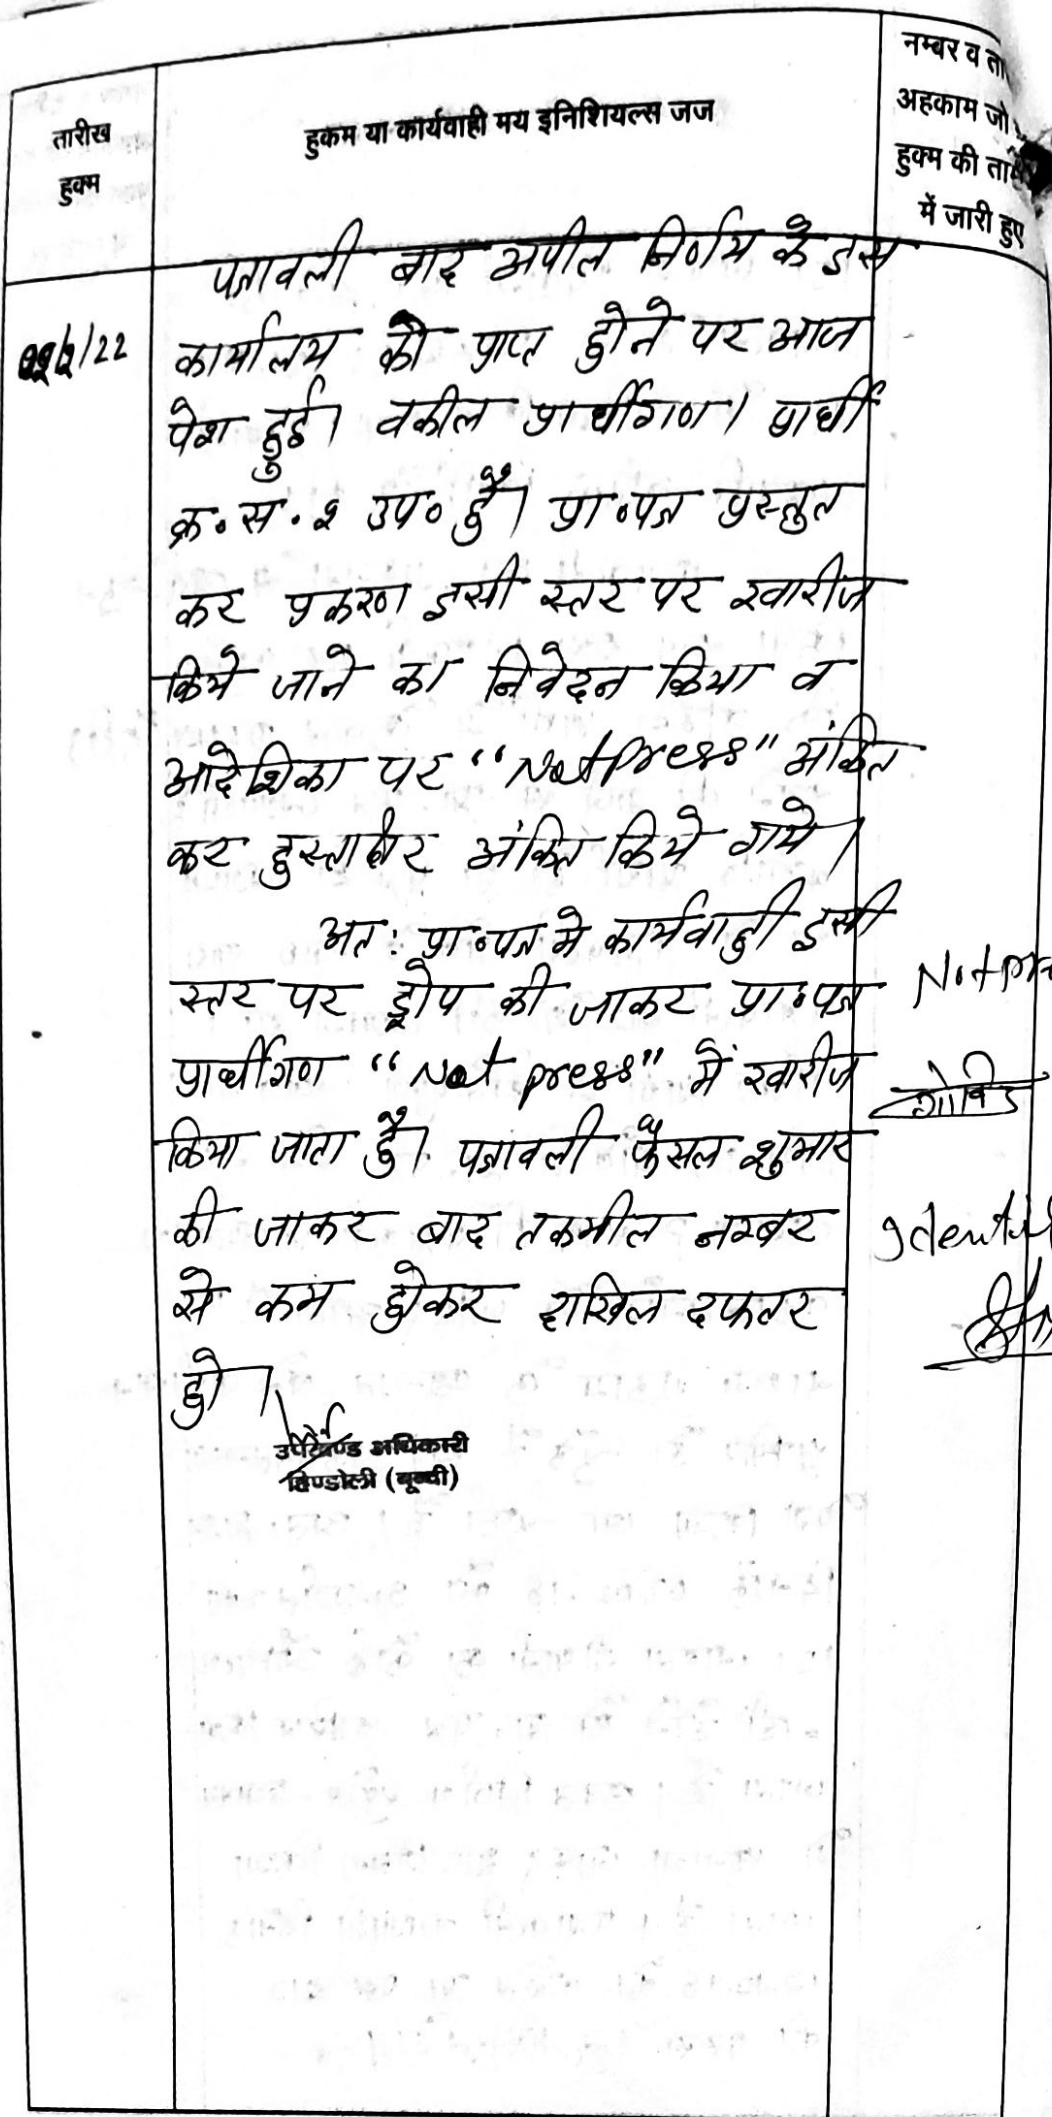 तारीख
हुक्म
हुकम या कार्यवाही मय इनिशियल्स जज
नम्बर व ता
अहकाम जो
हुक्म की ता
में जारी हुए
पत्रावली बाद अपील निर्णय के इस
कार्यालय को प्राप्त होने पर आज
पेश हुई। वकील प्रार्थीगण। प्रार्थी
क्र०स०२ उप० है। प्रा०पत्र प्रस्तुत
कर प्रकरण इसी स्तर पर खारीज
किये जाने का निवेदन किया व
आदेशिका पर "Not Press" अंकित
कर हस्ताक्षर अंकित किये गये।
अत: प्रा०पत्र मे कार्यवाही इसी
स्तर पर ड्रोप की जाकर प्रा०पत्र
प्रार्थीगण "Not press" में खारीज
किया जाता है। पत्रावली फैसल शुमार
की जाकर बाद तकमील नम्बर
से कम होकर दाखिल दफतर
हो।
उपखण्ड अधिकारी
हिण्डोली (बून्दी)
Not pre
गोविन्द
Identif